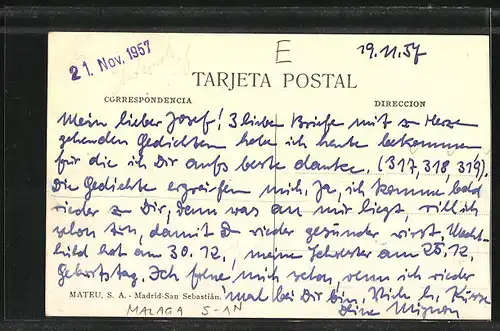 21. Nov. 1957
E
19.11.57
TARJETA POSTAL
CORRESPONDENCIA
DIRECCION
Mein lieber Josef! 3 liebe Briefe mit zu Herze
gehenden Gedichten habe ich heute bekommen
für die ich Dir aufs beste danke. (317, 318, 319).
Die Gedichte ergreifen mich. Ja, ich komme bald
wieder zu Dir, denn was an mir liegt, will ich
schon tun, damit Du wieder gesünder wirst.
hat am 30.12., meine Schwester am 25.12.
Geburtstag. Ich freue mich schon, wenn ich wieder
mal bei Dir bin. Viele h. Küsse
Deine Mignon
MATEU, S. A. - Madrid-San Sebastián.
MALAGA S-AN